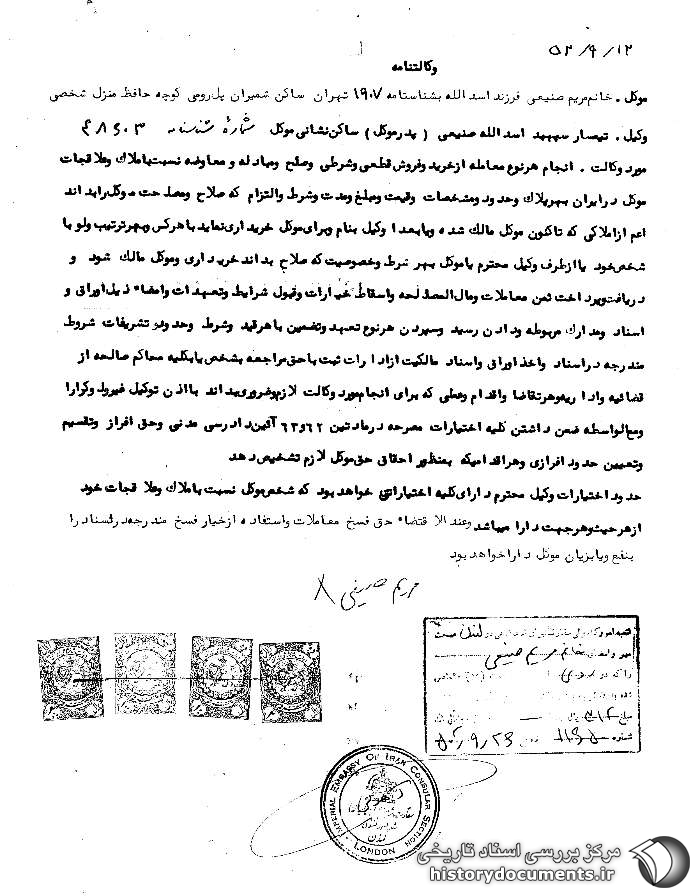 ۵۲/۹/۱۲
وکالتنامه
موکل . خانم مریم صنیعی فرزند اسد الله بشناسنامه ۱۹۰۷ تهران ساکن شمیران پل رومی کوچه حافظ منزل شخصی
وکیل . تیمسار سپهبد اسد الله صنیعی ( پدر موکل ) ساکن نشانی موکل شماره شناسنامه
مورد وکالت . انجام هرنوع معامله از خرید و فروش قطعی و شرطی و صلح و مبادله و معاوضه نسبت باملاک و علاقجات
موکل در ایران بهر پلاک و حدود و مشخصات و قیمت و مبلغ و مدت و شرط و التزام که صلاح و مصلحت موکل را بداند
اعم از املاکی که تاکنون موکل مالک شده و یا بعدا وکیل بنام و برای موکل خریداری نماید با هر کس و بهر ترتیب ولو با
شخص خود یا از طرف وکیل محترم یا موکل بهر شرط و خصوصیت که صلاح بداند خریداری و موکل مالک شود و
دریافت و پرداخت ثمن معاملات و مال المصالحه و اسقاط خیارات و قبول شرایط و تعهدات و امضاء ذیل اوراق و
اسناد و مدارک مربوطه و دادن رسید و سپردن هرنوع تعهد و تضمین با هر قید و شرط و حدود و تشریفات شروط
مندرجه در اسناد و اخذ اوراق و اسناد مالکیت از ادارات ثبت با حق مراجعه بشخص یا بکلیه محاکم صالحه از
قضائیه و اداریه و هر تقاضا و اقدام و عملی که برای انجام مورد وکالت لازم و ضروری بداند با اذن توکیل غیر ولو کرارا
و مع الواسطه ضمن داشتن کلیه اختیارات مصرحه در مادتین ۶۲ و ۶۳ آئین دادرسی مدنی و حق افراز و تقسیم
و تعیین حدود افرازی و هر اقدامیکه بمنظور احقاق حق موکل لازم تشخیص دهد
حدود اختیارات وکیل محترم دارای کلیه اختیاراتی خواهد بود که شخص موکل نسبت باملاک و علاقجات خود
از هر حیث و هر جهت دارا میباشد و عند الاقتضاء حق فسخ معاملات و استفاده از خیار فسخ مندرجه در اسناد را
بنفع و یا بزیان موکل دارا خواهد بود
مریم صنیعی
خانم مریم صنیعی
IMPERIAL EMBASSY OF IRAN CONSULAR SECTION
LONDON
لندن
مرکز بررسی اسناد تاریخی
historydocuments.ir